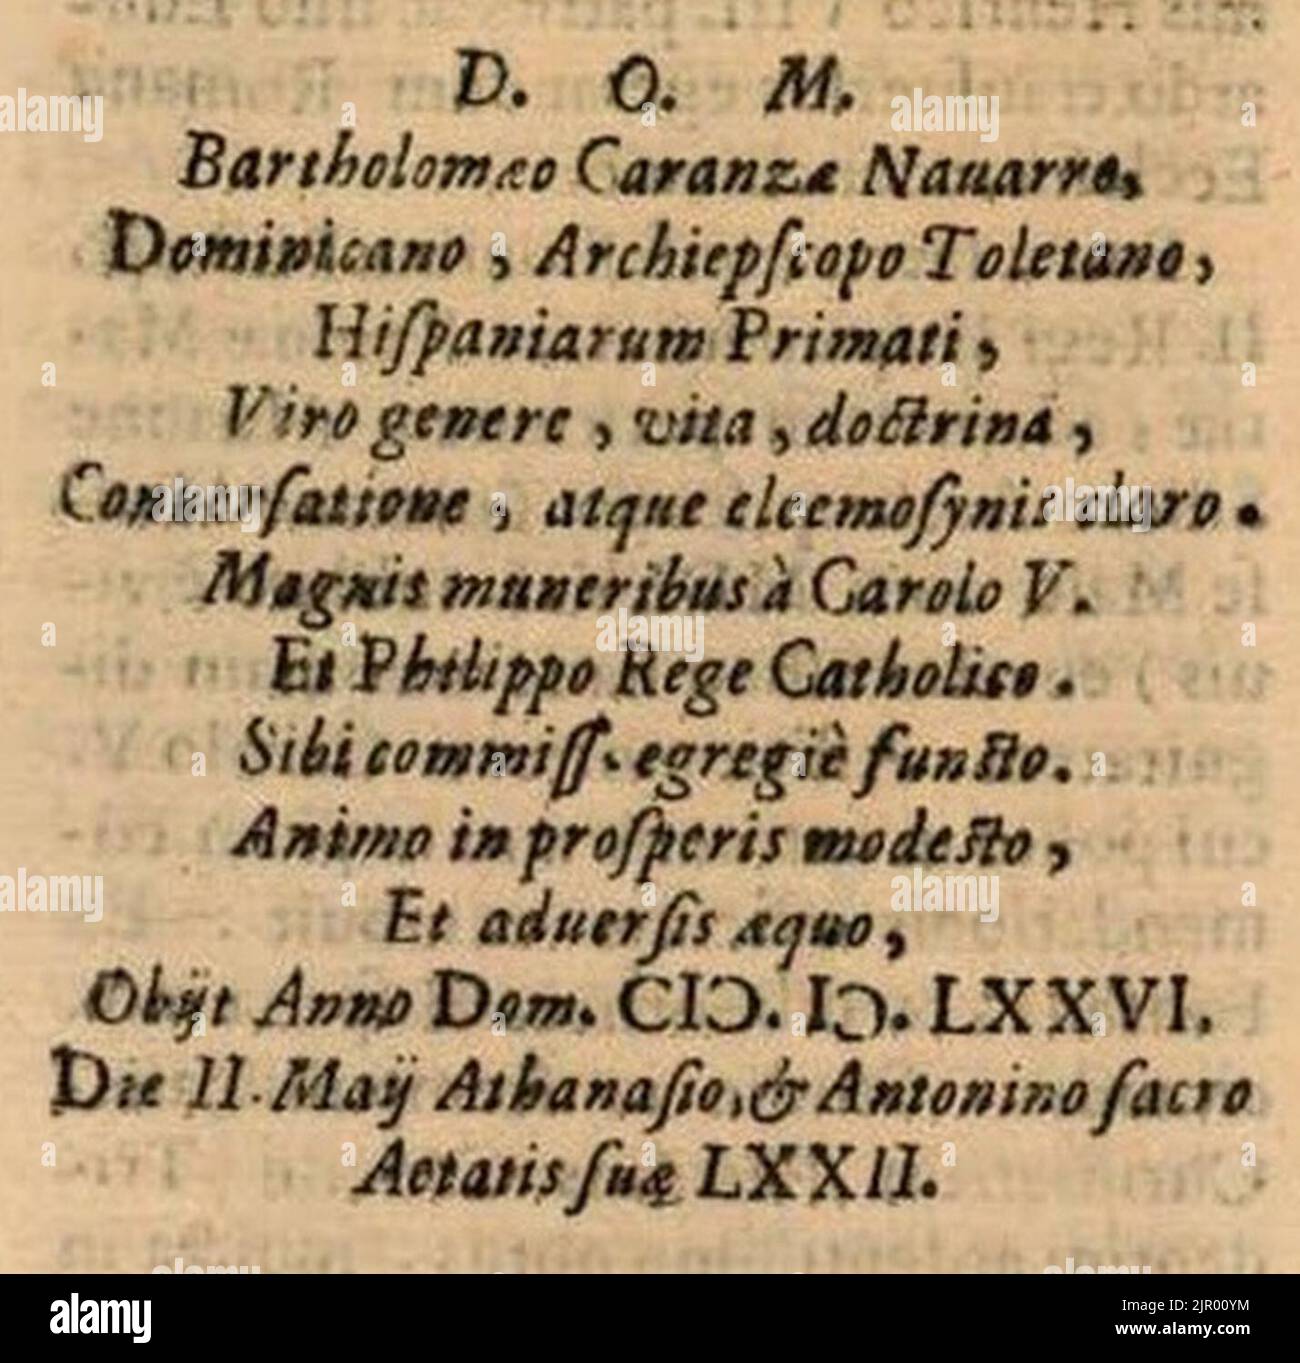 D. O. M.
Bartholomæo Caranzæ Nauarro,
Dominicano, Archiepſcopo Toletano,
Hiſpaniarum Primati,
Viro genere, vita, doctrina,
Conuerſatione, atque eleemoſynis claro.
Magnis muneribus à Carolo V.
Et Philippo Rege Catholico.
Sibi commiſſ. egregiè functo.
Animo in proſperis modesto,
Et aduerſis æquo,
Obijt Anno Dom. CIƆ. IƆ. LXXVI.
Die II. Maij Athanaſio, & Antonino ſacro
Aetatis ſuæ LXXII.
alamy
Image ID: 2JR00YM
www.alamy.com